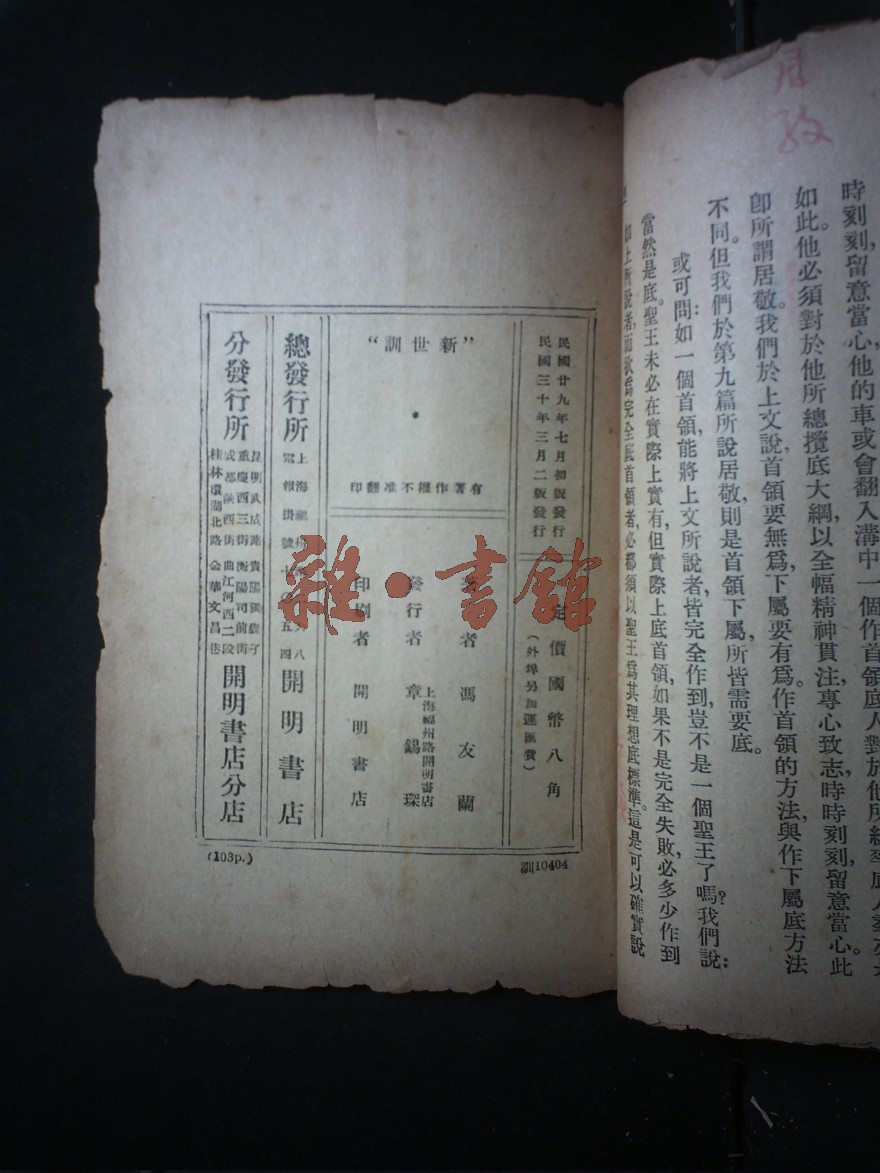 月
致
時刻刻,留意當心,他的車或會翻入溝中一個作首領底人對於他所
如此。他必須對於他所總攬底大綱,以全幅精神貫注,專心致志,時時刻刻,留意當心。此
卽所謂居敬。我們於上文說首領要無爲,下屬要有爲。作首領的方法,與作下屬底方法
不同。但我們於第九篇所說居敬,則是首領下屬,所皆需要底。
或可問:如一個首領,能將上文所說者,皆完全作到,豈不是一個聖王了嗎?我們說:
當然是底。聖王未必在實際上實有,但實際上底首領,如果不是完全失敗,必多少作到
如上所說者,而欲爲完全底首領者,必都須以聖王爲其理想底標準。這是可以確實說
民國廿九年七月初版發行
民國三十年三月二版發行
定價國幣八角
(外埠另加運匯費)
“新世訓”
有著作權不准翻印
著者 馮友蘭
發行者 上海福州路開明書店 章錫琛
印刷者 開明書店
總發行所 上海 開明書店
電報掛號 五四
分發行所 開明書店分店
昆明武成路
重慶西三街 衡陽司前街
成都陝西街 曲江河西二段
桂林環湖北路 金華文昌巷
(103p.)
訓10404
雜·書館